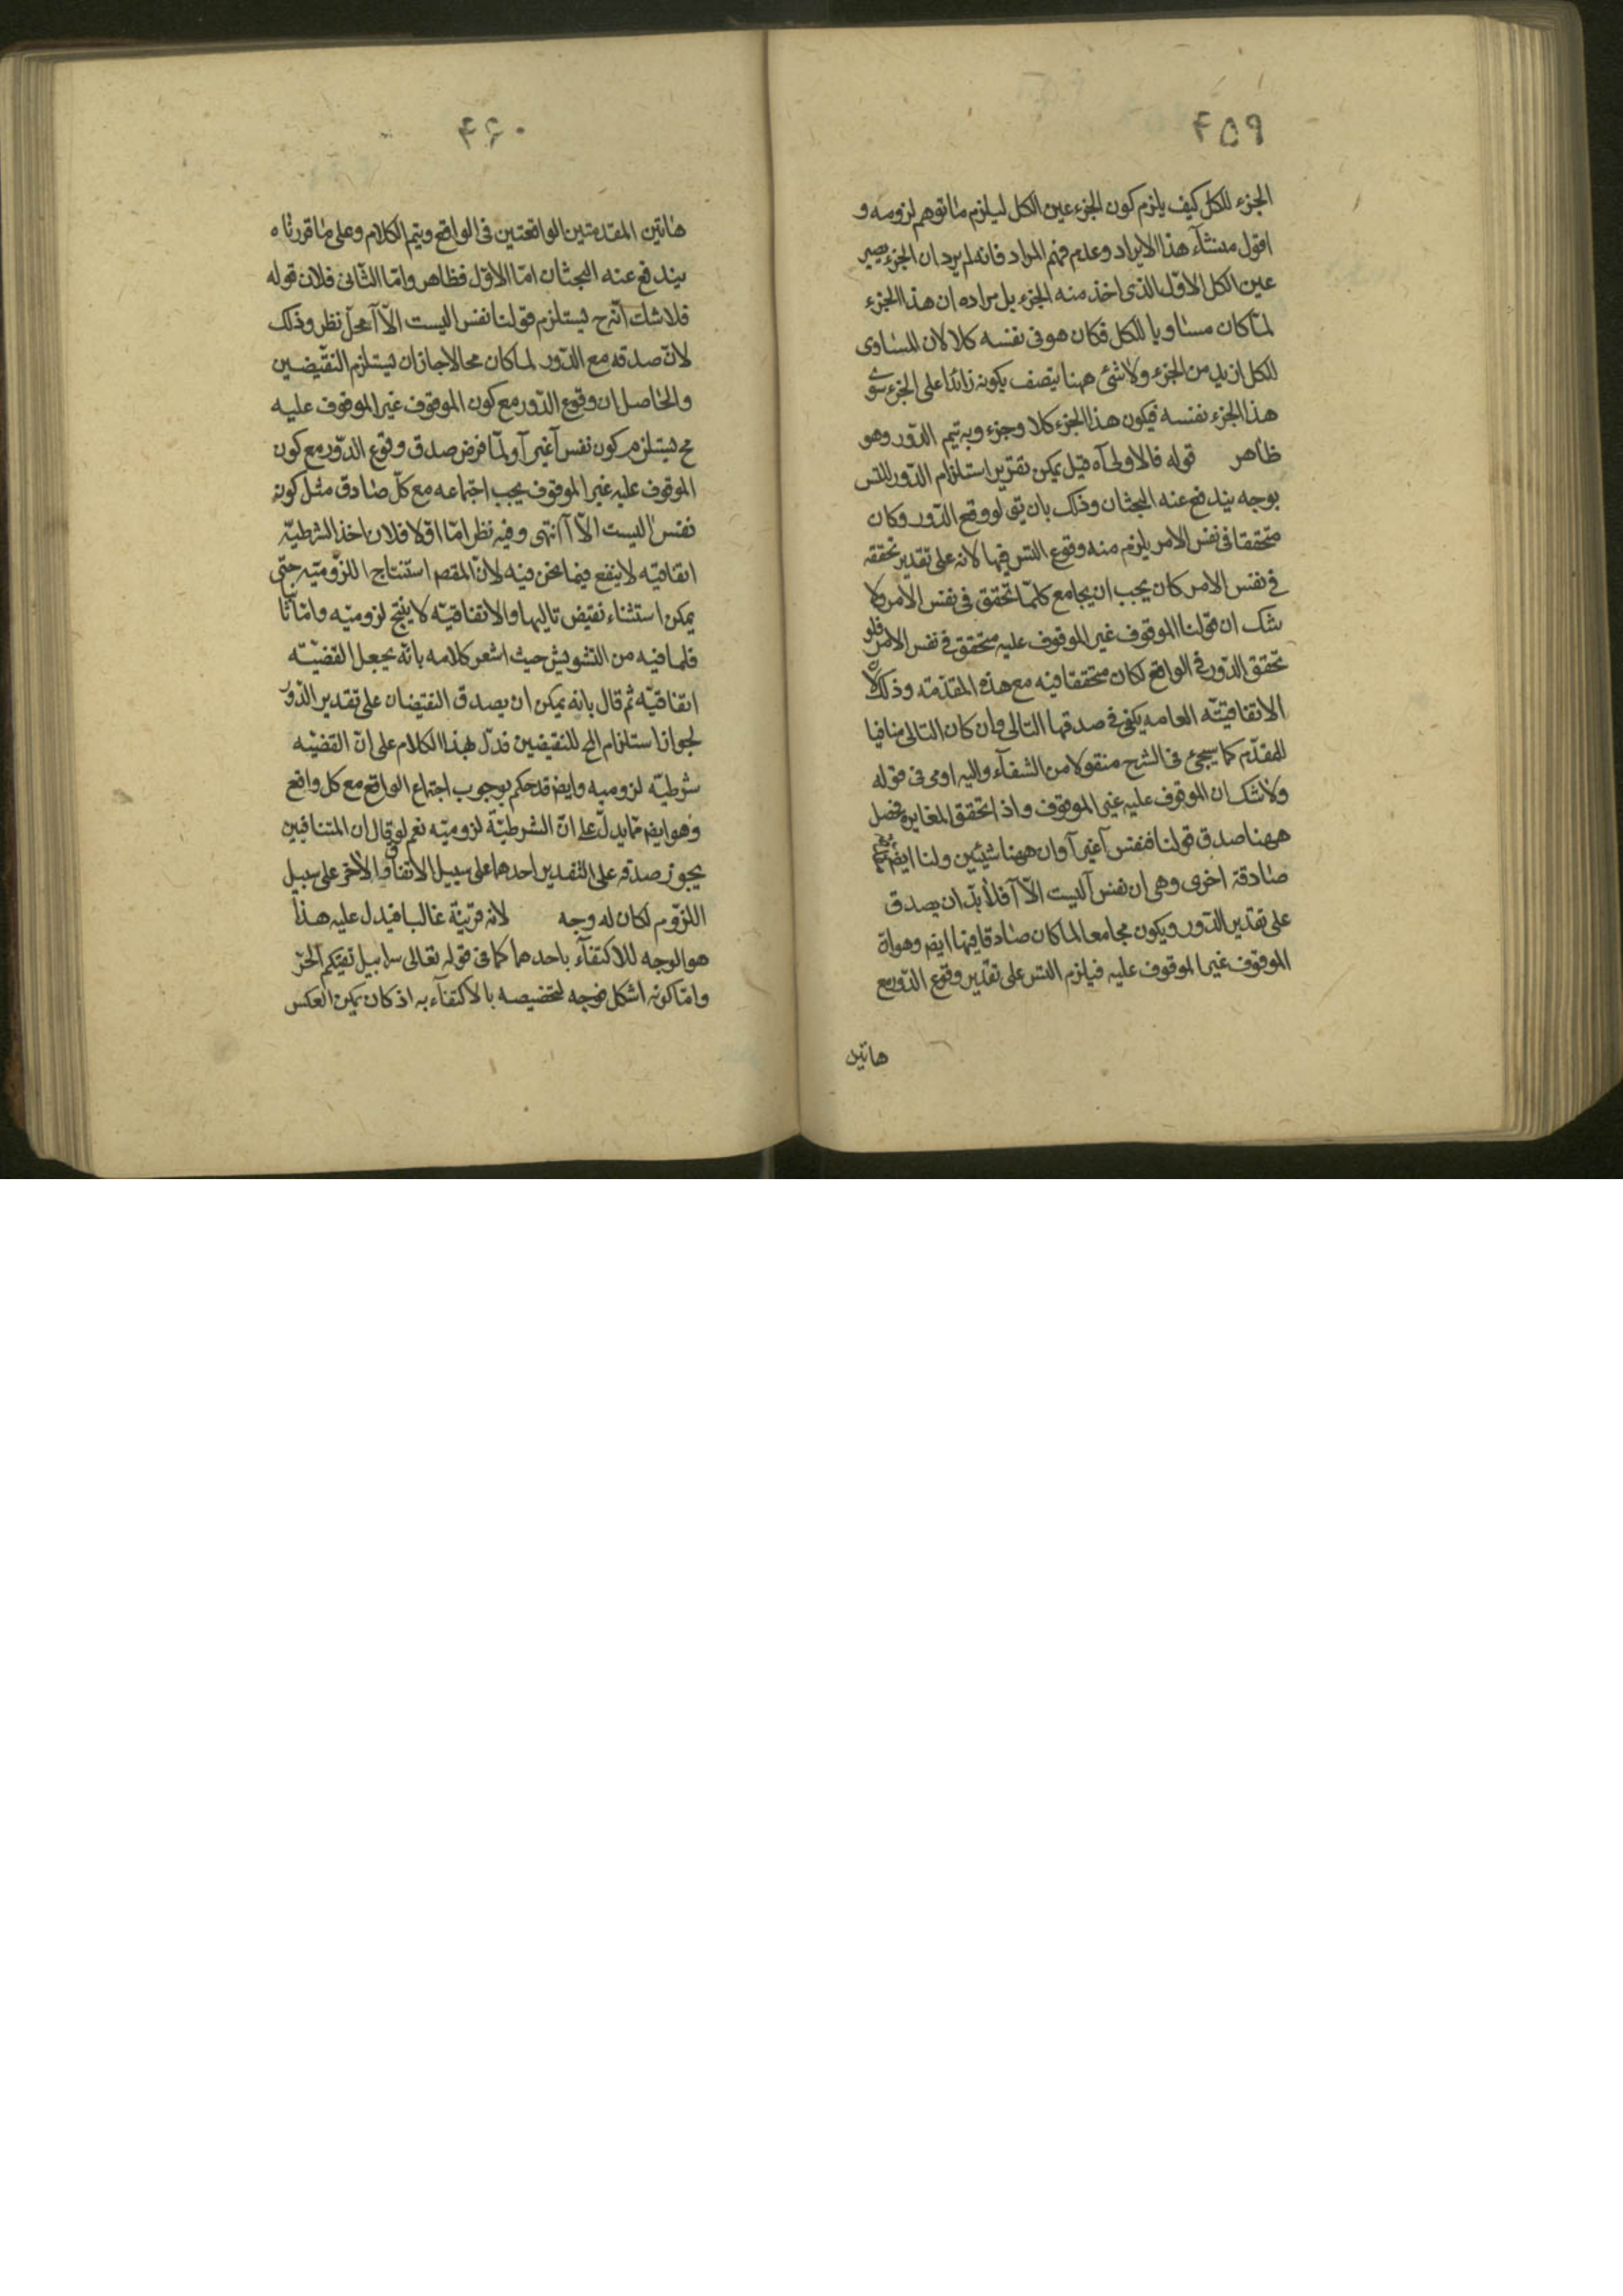 ۴۵۹
الجزء للكل كيف يلزم كون الجزء عين الكل ليلزم ما توهم لزومه و
اقول منشأء هذا الايراد وعدم فهم المراد فانه لم يرد ان الجزء يصير
عين الكل الاوّل الذى اخذ منه الجزء بل مراده ان هذا الجزء
لمّا كان مساويا للكل فكان هو فى نفسه كلا لان المساوى
للكل ازيد من الجزء ولا شئ ههنا يتصف بكونه زائدا على الجزء سوى
هذا الجزء نفسه فيكون هذا الجزء كلا وجزء وبه تيم الدّور وهو
ظاهر قوله فالاولى آه قيل يمكن تقرير استلزام الدّور للتس
بوجه يندفع عنه البحثان وذلك بان يق لو وقع الدّور وكان
متحققا فى نفس الامر يلزم منه وقوع التس فيها لانه على تقدير تحققه
فى نفس الامر كان يجب ان يجامع كلمّا تحقق فى نفس الامر ولا
شك ان قولنا الموقوف غير الموقوف عليه متحقق فى نفس الامر فلو
تحقق الدّور فى الواقع لكان متحققا فيه مع هذه المقدّمه وذلك لان
الاتفاقيّه العامه يكفى فى صدقها التالى وان كان التالى منافيا
للمقدّم كما سيجئ فى الشرح منقولا من الشفآء واليه اومى فى قوله
ولا شك ان الموقوف عليه غير الموقوف واذ اتحقق المغايره فحصل
ههنا صدق قولنا فنفس آ غير آ وان ههنا شيئين ولنا ايضا
صادقة اخرى وهى ان نفس آ ليست الّا آ فلا بدّ ان يصدق
على تقدير الدّور ويكون مجامعا لما كان صادقا فيها ايضا وهو ان
الموقوف غير الموقوف عليه فيلزم التس على تقدير وقوع الدّور مع
هاتين
۴۶۰
هاتين المقدمتين الواقعتين فى الواقع ويتم الكلام وعلى ما قررناه
يندفع عنه البحثان امّا الاوّل فظاهر وامّا الثّانى فلان قوله
فلا شك انّه ح يستلزم قولنا نفس ا ليست الّا آ محلّ نظر وذلك
لانّ صدقه مع الدّور لما كان محالا جاز ان يستلزم النقيضين
والحاصل ان وقوع الدّور مع كون الموقوف غير الموقوف عليه
مح يستلزم كون نفس آ غير آ ولمّا فرض صدق وقوع الدّور مع كون
الموقوف عليه غير الموقوف يجب اجتماعه مع كلّ صادق مثل كون
نفس ا ليست الّا آ انتهى وفيه نظر امّا اوّلا فلان اخذ الشرطيّه
اتفاقيّه لا ينفع فيما نحن فيه لانّ المقصم استنتاج اللزوميّه حتى
يمكن استثناء نقيض تاليها والاتفاقيّه لا ينتج لزوميّه وامّا ثانيا
فلما فيه من التشويش حيث اشعر كلامه بانّه يجعل القضيّه
اتفاقيّه ثم قال بانه يمكن ان يصدق النقيضان على تقدير الدّور
لجواز استلزام المح للنقيضين فدلّ بهذا الكلام على انّ القضيّه
شرطيّه لزوميه وايضا قد حكم بوجوب اجتماع الواقع مع كل واقع
وهو ايضا ممّا يدلّ على انّ الشرطيّة لزوميّه نعم لو قال ان المتنافيين
يجوز صدقه على التقديرين احدهما على سبيل الاتفاق والاخر على سبيل
اللزوم لكان له وجه لانه قرينة غالبا فيدل عليه هذا
هو الوجه للاكتفآء باحدهما كما فى قوله تعالى سرابيل تقيكم الحرّ
وامّا كونه اشكل فوجه لتخصيصه بالاكتفآء به اذ كان يمكن العكس